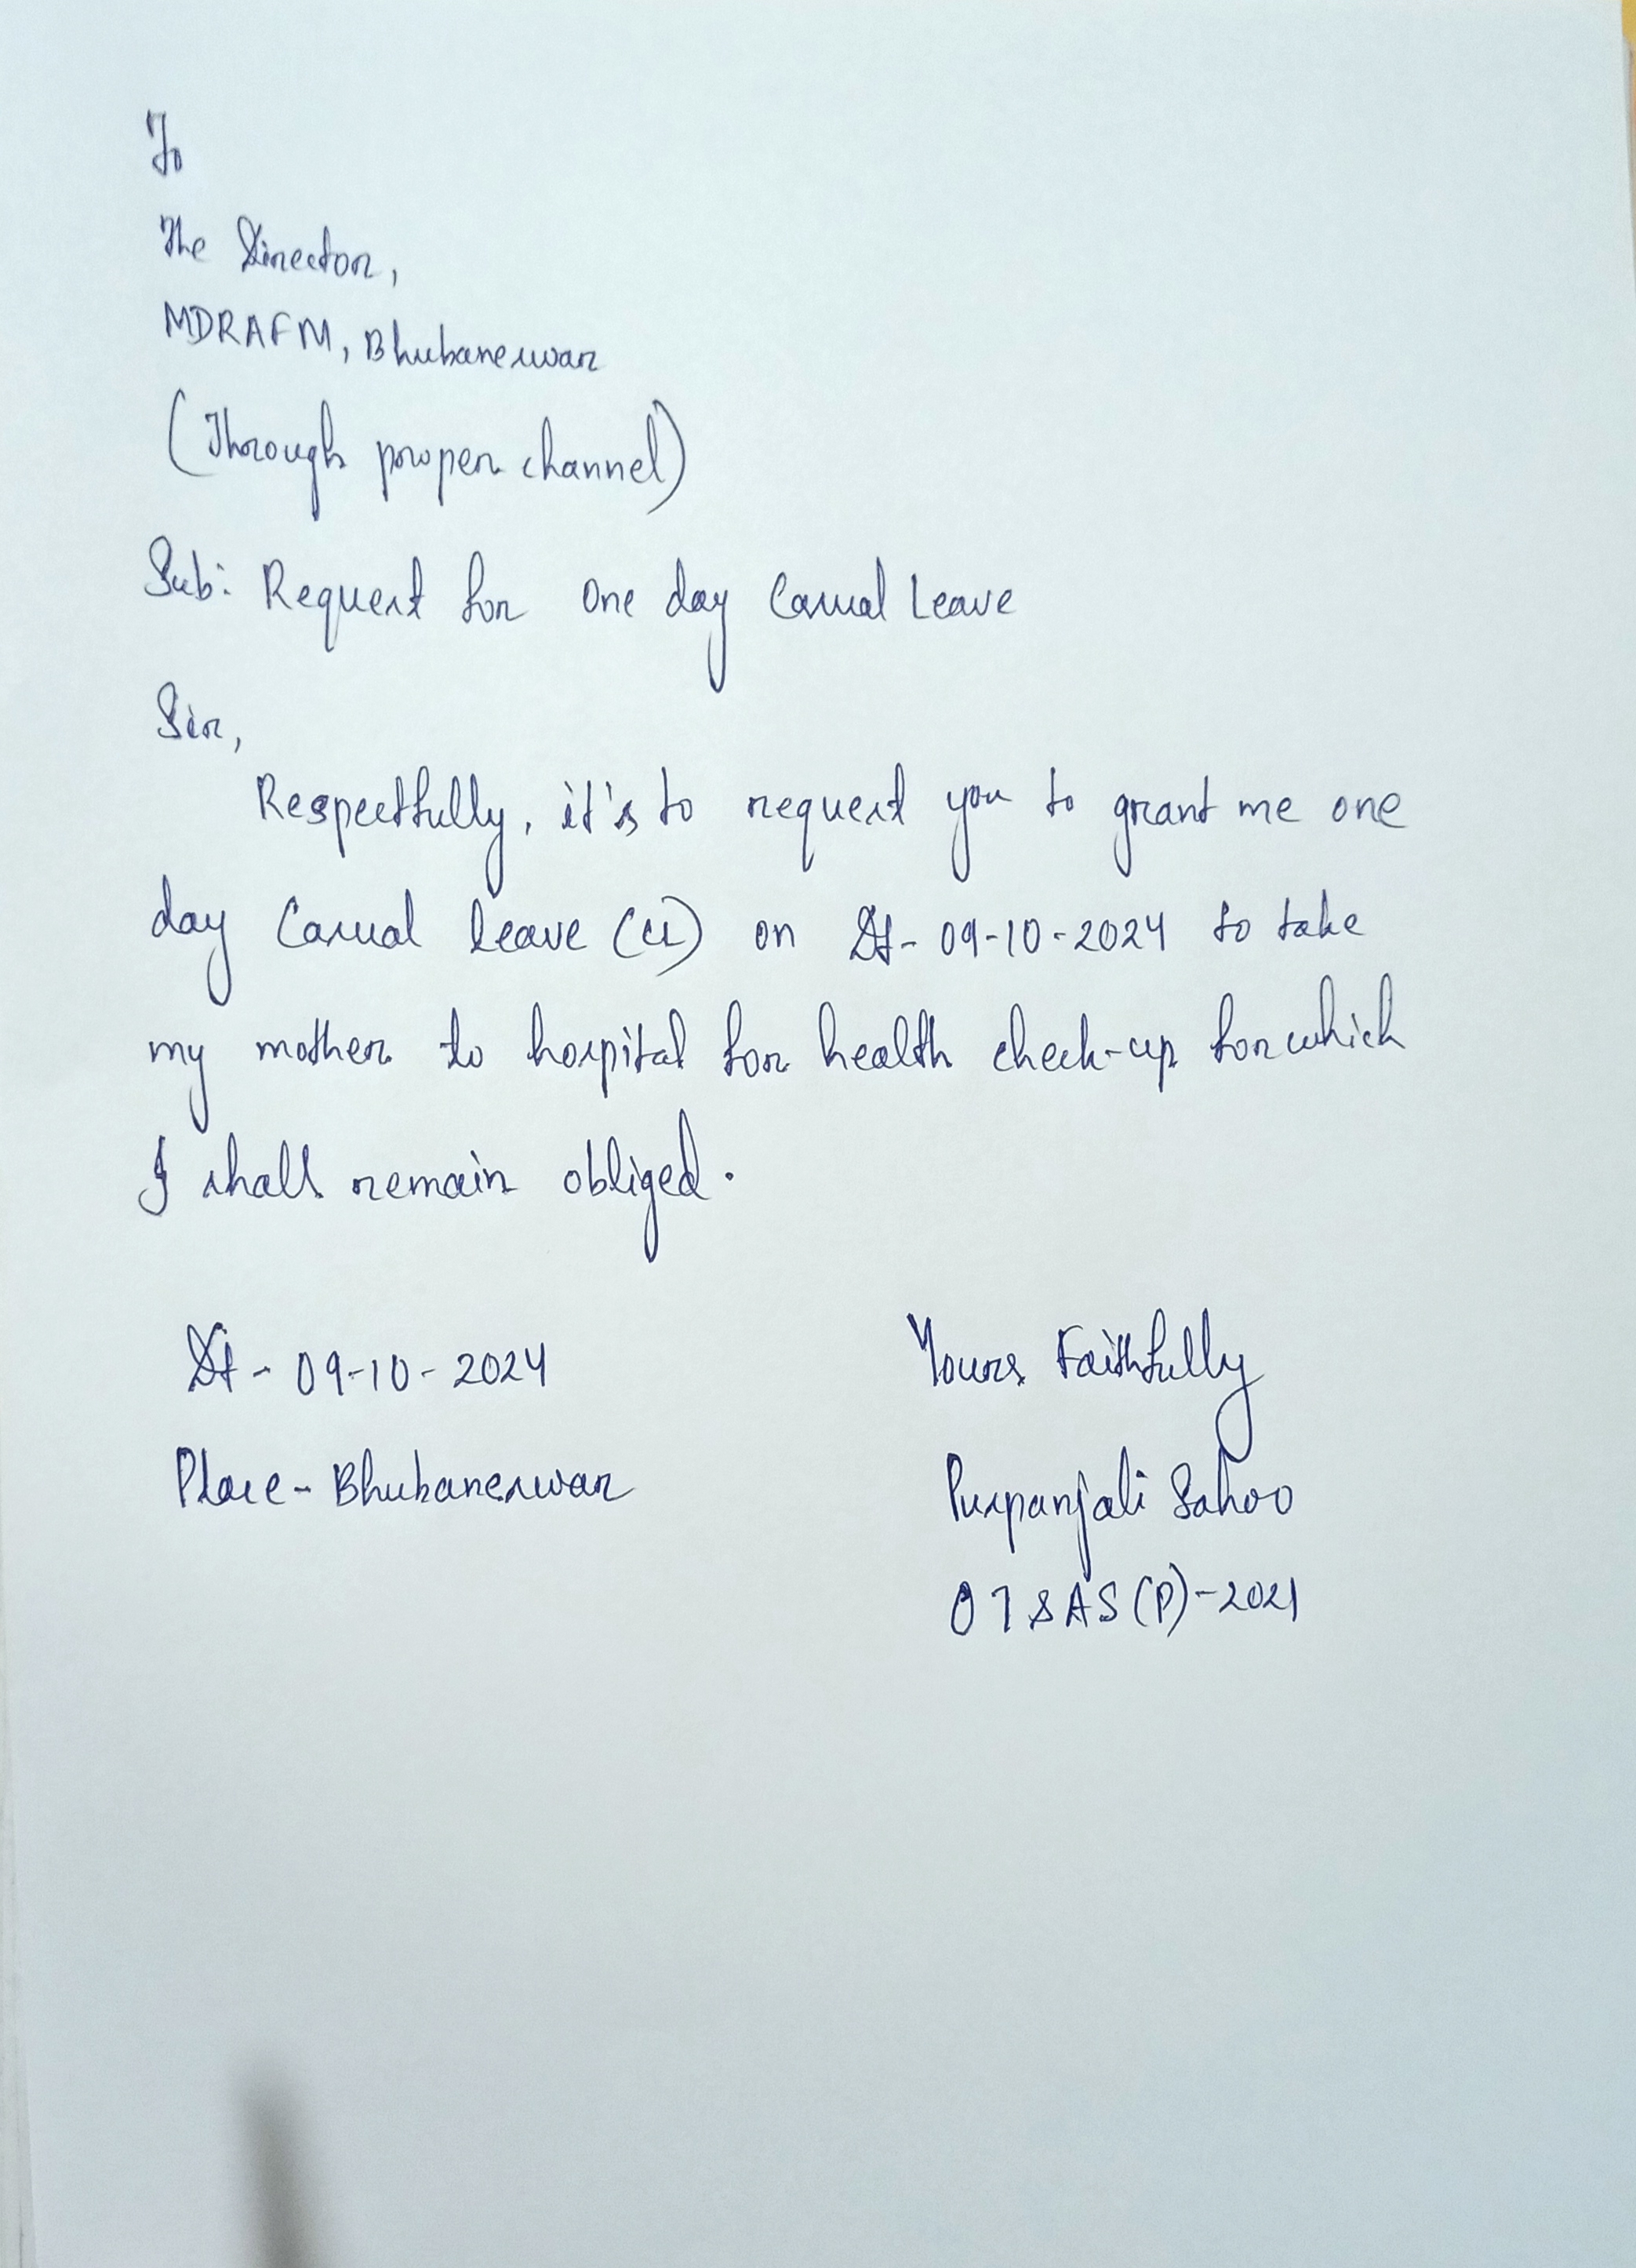 To
The Director,
MDRAFM, Bhubaneswar
(Through proper channel)
Sub: Request for one day Casual Leave
Sir,
Respectfully, it's to request you to grant me one
day Casual leave (CL) on Dt- 09-10-2024 to take
my mother to hospital for health check-up for which
I shall remain obliged.
Dt - 09-10-2024
Yours Faithfully
Place - Bhubaneswar
Puspanjali Sahoo
OT SAS (P)-2021